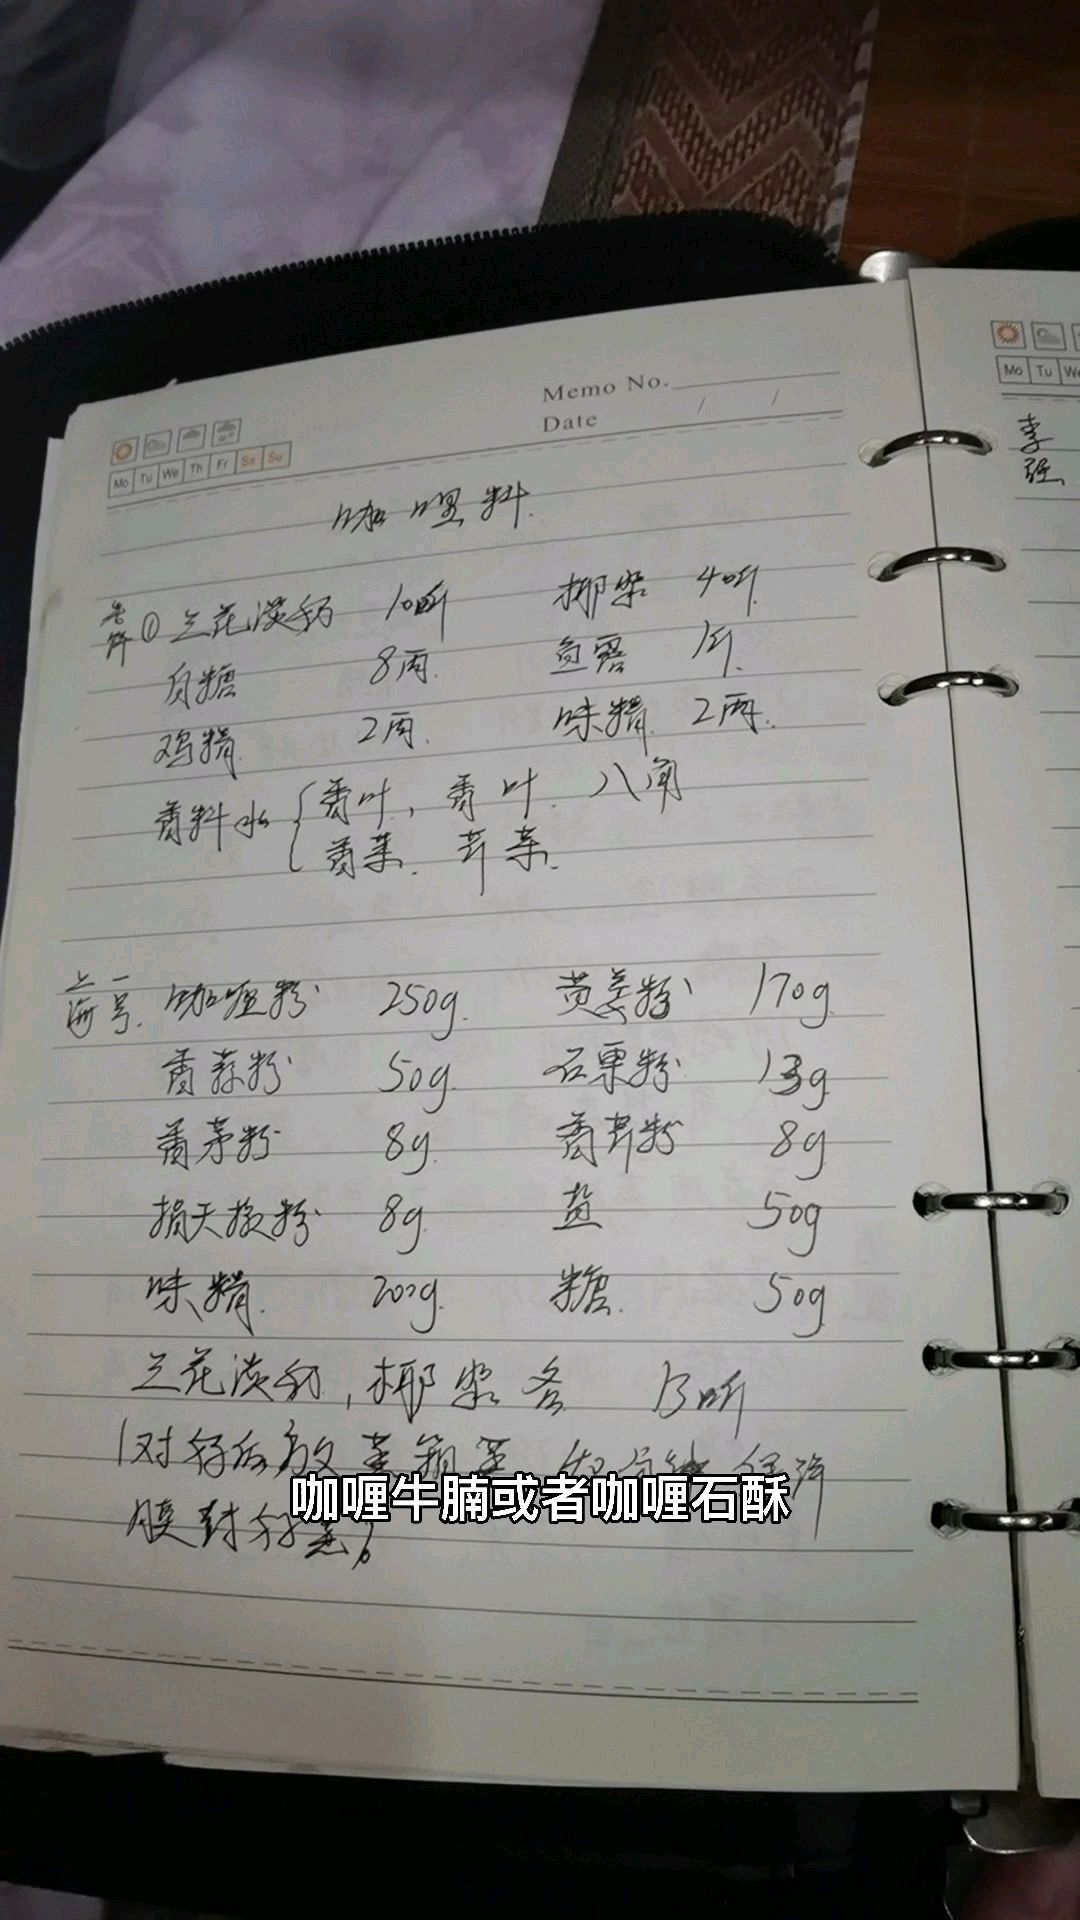 Memo No.
Date / /
Mo Tu We Th Fr Sa Su
Mo Tu We
李
强
咖喱料.
① 兰花淡奶 10听 椰浆 4听.
白糖 8两. 鱼露 1斤.
鸡精. 2两. 味精. 2两.
香料水 { 香叶, 香叶. 八角
香菜. 芹菜.
上海一号. 咖喱粉 250g. 黄姜粉 170g
香蒜粉 50g. 石栗粉 13g
香茅粉 8g. 香芹粉 8g
指天椒粉 8g. 盐 50g
味精. 200g. 糖. 50g
兰花淡奶, 椰浆各 13听
咖喱牛腩或者咖喱石酥
膜封好蒸)。